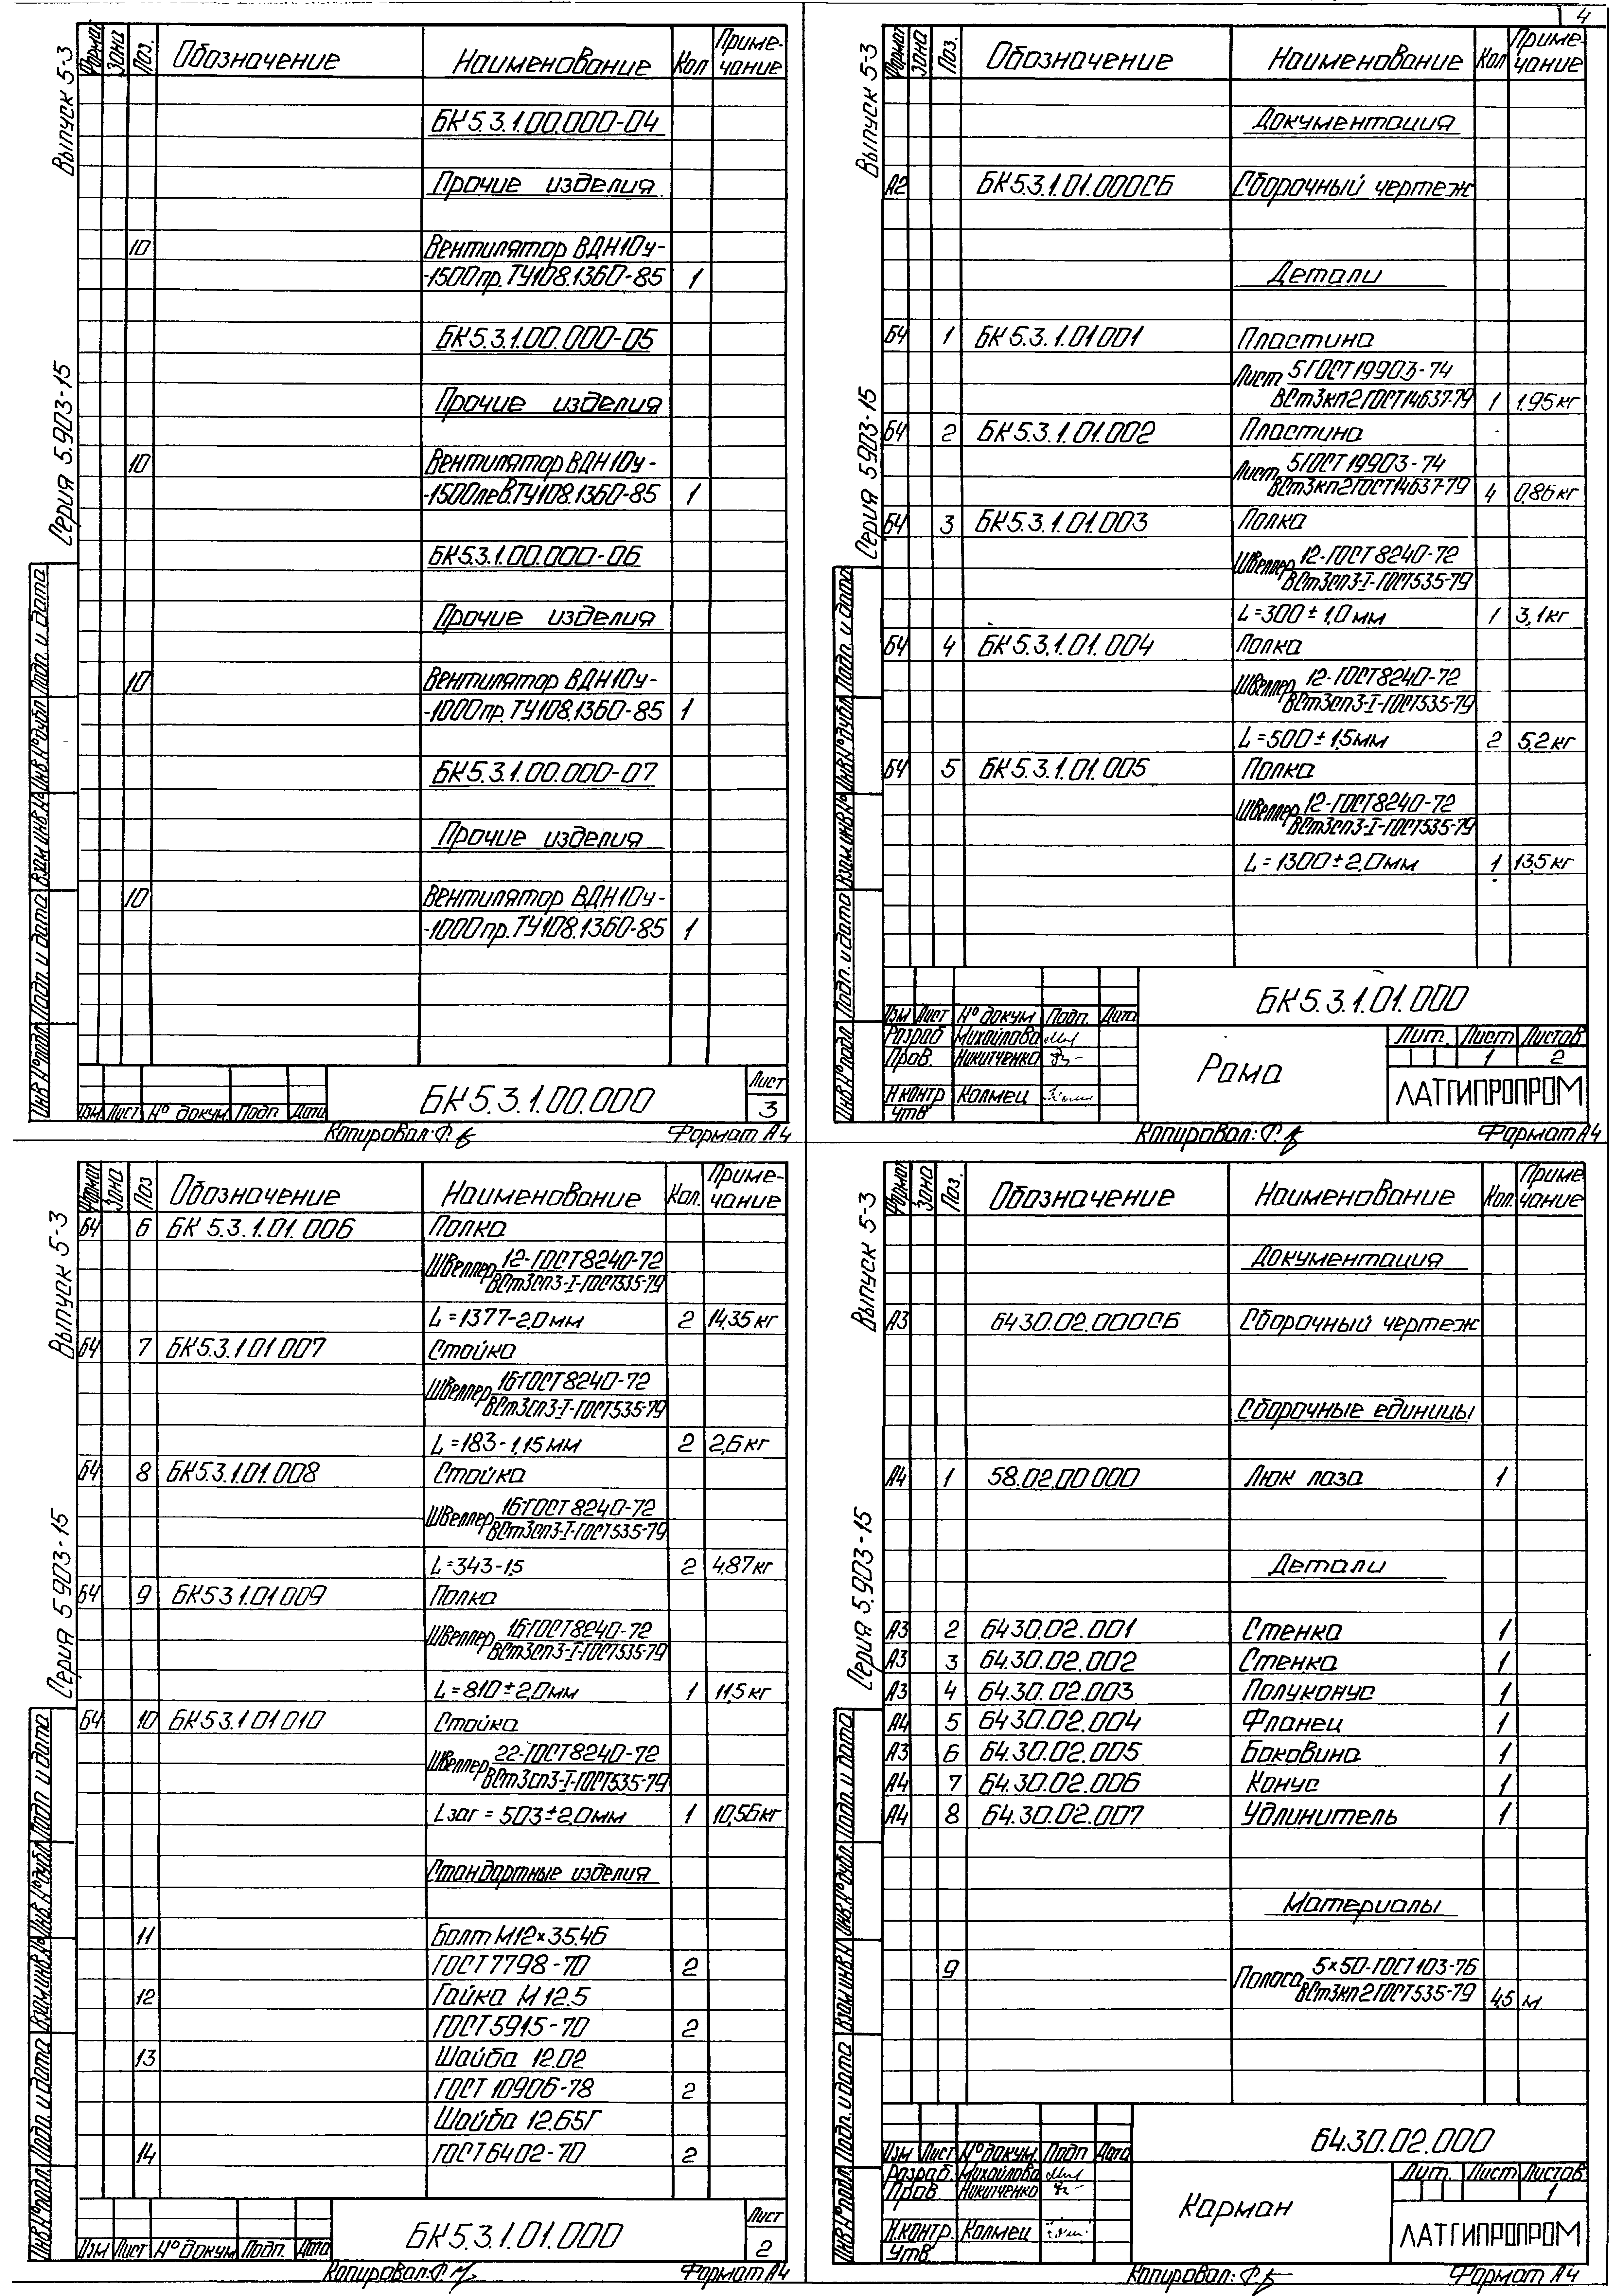 4
Выпуск 5-3
Серия 5.903-15
Формат Зона Поз. Обозначение Наименование Кол Примечание
БК5.3.1.00.000-04
Прочие изделия.
10 Вентилятор ВДН10у-
-1500пр. ТУ108.1360-85 1
БК5.3.1.00.000-05
Прочие изделия
10 Вентилятор ВДН10у-
-1500лев.ТУ108.1360-85 1
БК5.3.1.00.000-06
Прочие изделия
10 Вентилятор ВДН10у-
-1000пр. ТУ108.1360-85 1
БК5.3.1.00.000-07
Прочие изделия
10 Вентилятор ВДН10у-
-1000пр. ТУ108.1360-85 1
Инв.N°подл. Подп. и дата Взам.инв.N° Инв.N°дубл Подп. и дата
Изм Лист N° докум. Подп Дата
БК5.3.1.00.000
Лист
3
Копировал: Формат А4
Выпуск 5-3
Серия 5.903-15
Формат Зона Поз. Обозначение Наименование Кол Примечание
Документация
А2 БК5.3.1.01.000СБ Сборочный чертеж
Детали
БЧ 1 БК5.3.1.01001 Пластина
Лист 5ГОСТ19903-74
ВСт3кп2ГОСТ14637-79 1 1.95кг
БЧ 2 БК5.3.1.01.002 Пластина
Лист 5ГОСТ19903-74
ВСт3кп2ГОСТ14637-79 4 0,86кг
БЧ 3 БК5.3.1.01.003 Полка
Швеллер 12-ГОСТ8240-72
ВСт3сп3-I-ГОСТ535-79
L=300±1,0мм 1 3,1кг
БЧ 4 БК5.3.1.01.004 Полка
Швеллер 12-ГОСТ8240-72
ВСт3сп3-I-ГОСТ535-79
L=500±1,5мм 2 5,2кг
БЧ 5 БК5.3.1.01.005 Полка
Швеллер 12-ГОСТ8240-72
ВСт3сп3-I-ГОСТ535-79
L=1300±2,0мм 1 13,5кг
Инв.N°подл Подп. и дата Взам.инв.N° Инв.N°дубл Подп. и дата
БК5.3.1.01.000
Изм Лист N° докум. Подп. Дата
Разраб Михайлова
Пров. Никитченко
Н.контр Калмец
Утв
Рама
Лит. Лист Листов
1 2
ЛАТГИПРОПРОМ
Копировал: Формат А4
Выпуск 5-3
Серия 5.903-15
Формат Зона Поз Обозначение Наименование Кол. Примечание
БЧ 6 БК 5.3.1.01.006 Полка
Швеллер 12-ГОСТ8240-72
ВСт3сп3-I-ГОСТ535-79
L=1377-2,0мм 2 14,35кг
БЧ 7 БК5.3.101007 Стойка
Швеллер 16-ГОСТ8240-72
ВСт3сп3-I-ГОСТ535-79
L=183-1,15мм 2 2,6кг
БЧ 8 БК5.3.1.01.008 Стойка
Швеллер 16-ГОСТ8240-72
ВСт3сп3-I-ГОСТ535-79
L=343-1,5 2 4,87кг
БЧ 9 БК5 3 1.01 009 Полка
Швеллер 16-ГОСТ8240-72
ВСт3сп3-I-ГОСТ535-79
L=810±2,0мм 1 11,5кг
БЧ 10 БК5 3.1 01 010 Стойка
Швеллер 22-ГОСТ8240-72
ВСт3сп3-I-ГОСТ535-79
Lзаг=503±2,0мм 1 10,56кг
Стандартные изделия
11 Болт М12×35.46
ГОСТ7798-70 2
12 Гайка М12.5
ГОСТ5915-70 2
13 Шайба 12.02
ГОСТ 10906-78 2
Шайба 12.65Г
14 ГОСТ6402-70 2
Инв.N°подл. Подп. и дата Взам.инв.N° Инв.N°дубл. Подп и дата
Изм Лист N° докум Подп. Дата
БК5.3.1.01.000
Лист
2
Копировал: Формат А4
Выпуск 5-3
Серия 5.903-15
Формат Зона Поз. Обозначение Наименование Кол. Примечание
Документация
А3 6430.02.000СБ Сборочный чертеж
Сборочные единицы
А4 1 58.02.00 000 Люк лаза 1
Детали
А3 2 6430.02.001 Стенка 1
А3 3 64.30.02.002 Стенка 1
А3 4 64.30.02.003 Полуконус 1
А4 5 6430.02.004 Фланец 1
А3 6 64.30.02.005 Боковина 1
А4 7 64.30.02.006 Конус 1
А4 8 64.30.02.007 Удлинитель 1
Материалы
9 Полоса 5×50-ГОСТ103-76
ВСт3кп2ГОСТ535-79 4,5 м
Инв.N°подл. Подп. и дата Взам.инв.N Инв.N°дубл. Подп. и дата
64.30.02.000
Изм Лист N° докум. Подп Дата
Разраб. Михайлова
Пров Никитченко
Н.контр. Калмец
Утв.
Карман
Лит. Лист Листов
1
ЛАТГИПРОПРОМ
Копировал: Формат А4